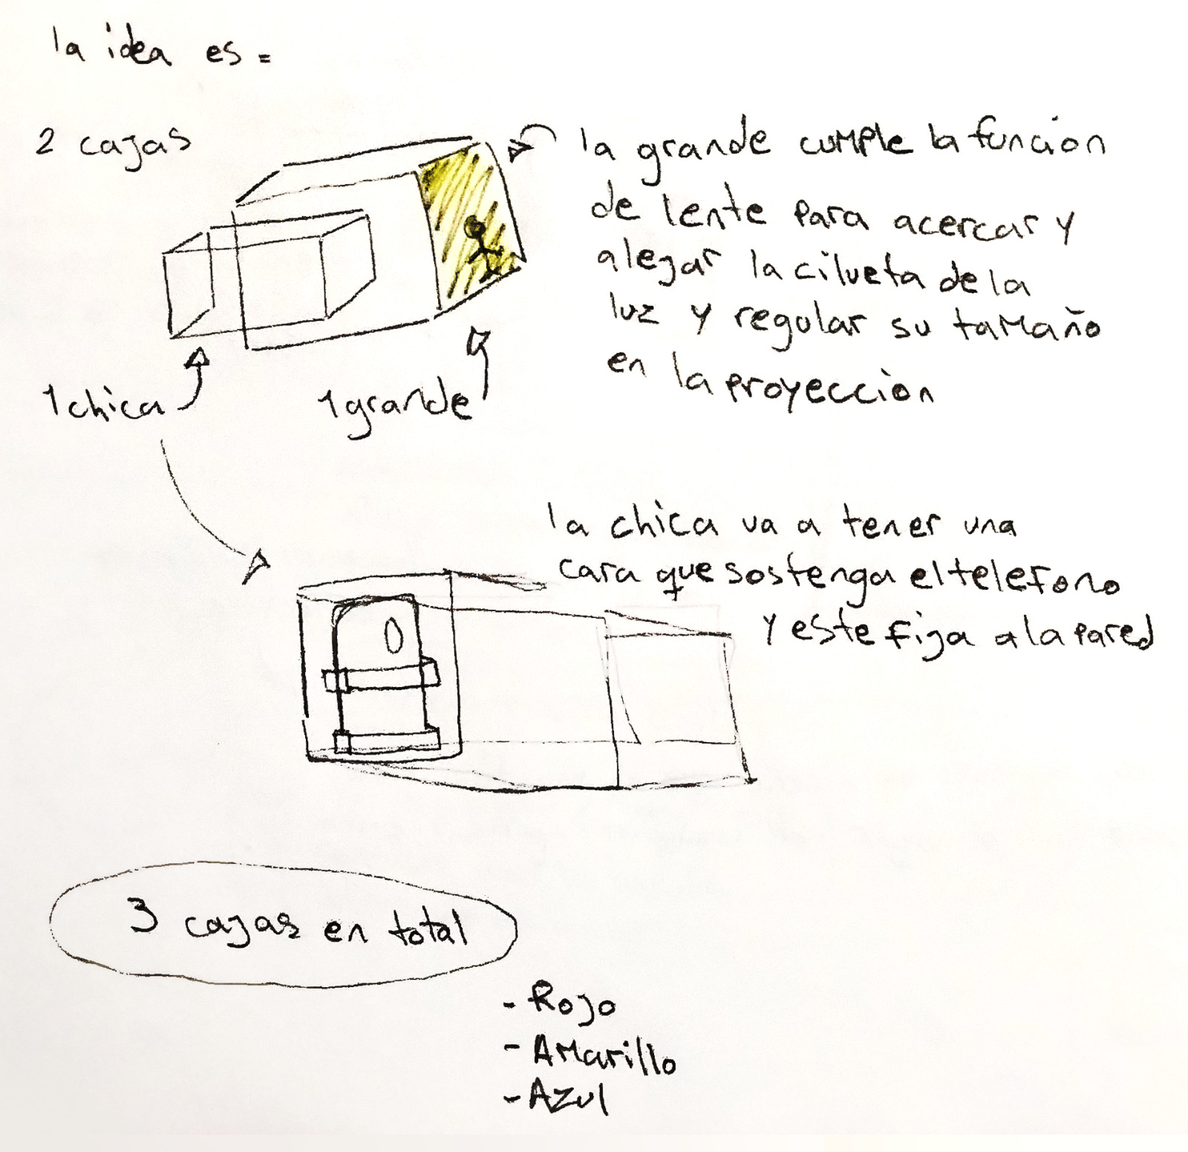 la idea es =
2 cajas
la grande cumple la función
de lente para acercar y
alejar la cilueta de la
luz y regular su tamaño
en la proyección
1 chica
1 grande
la chica va a tener una
cara que sostenga el telefono
y este fija a la pared
3 cajas en total
- Rojo
- Amarillo
- Azul